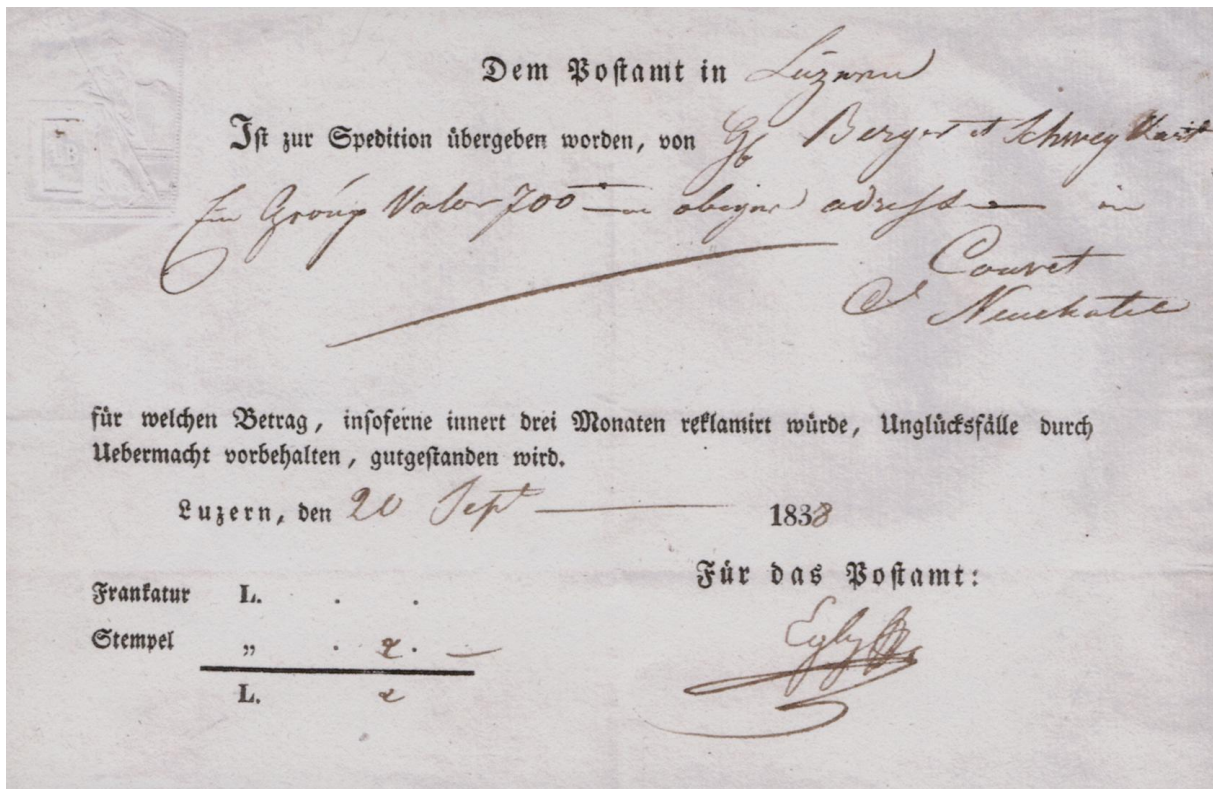 Dem Postamt in Luzern
Ist zur Spedition übergeben worden, von Berger et Schwey
Ein Group Valor 700 obiger adresse in
Couvet
Ct Neuchatel
für welchen Betrag, insoferne innert drei Monaten reklamirt würde, Unglücksfälle durch
Uebermacht vorbehalten, gutgestanden wird.
Luzern, den 20 Sept 1838
Für das Postamt:
Frankatur L. . .
Stempel „ . 2. —
L. 2
Egly